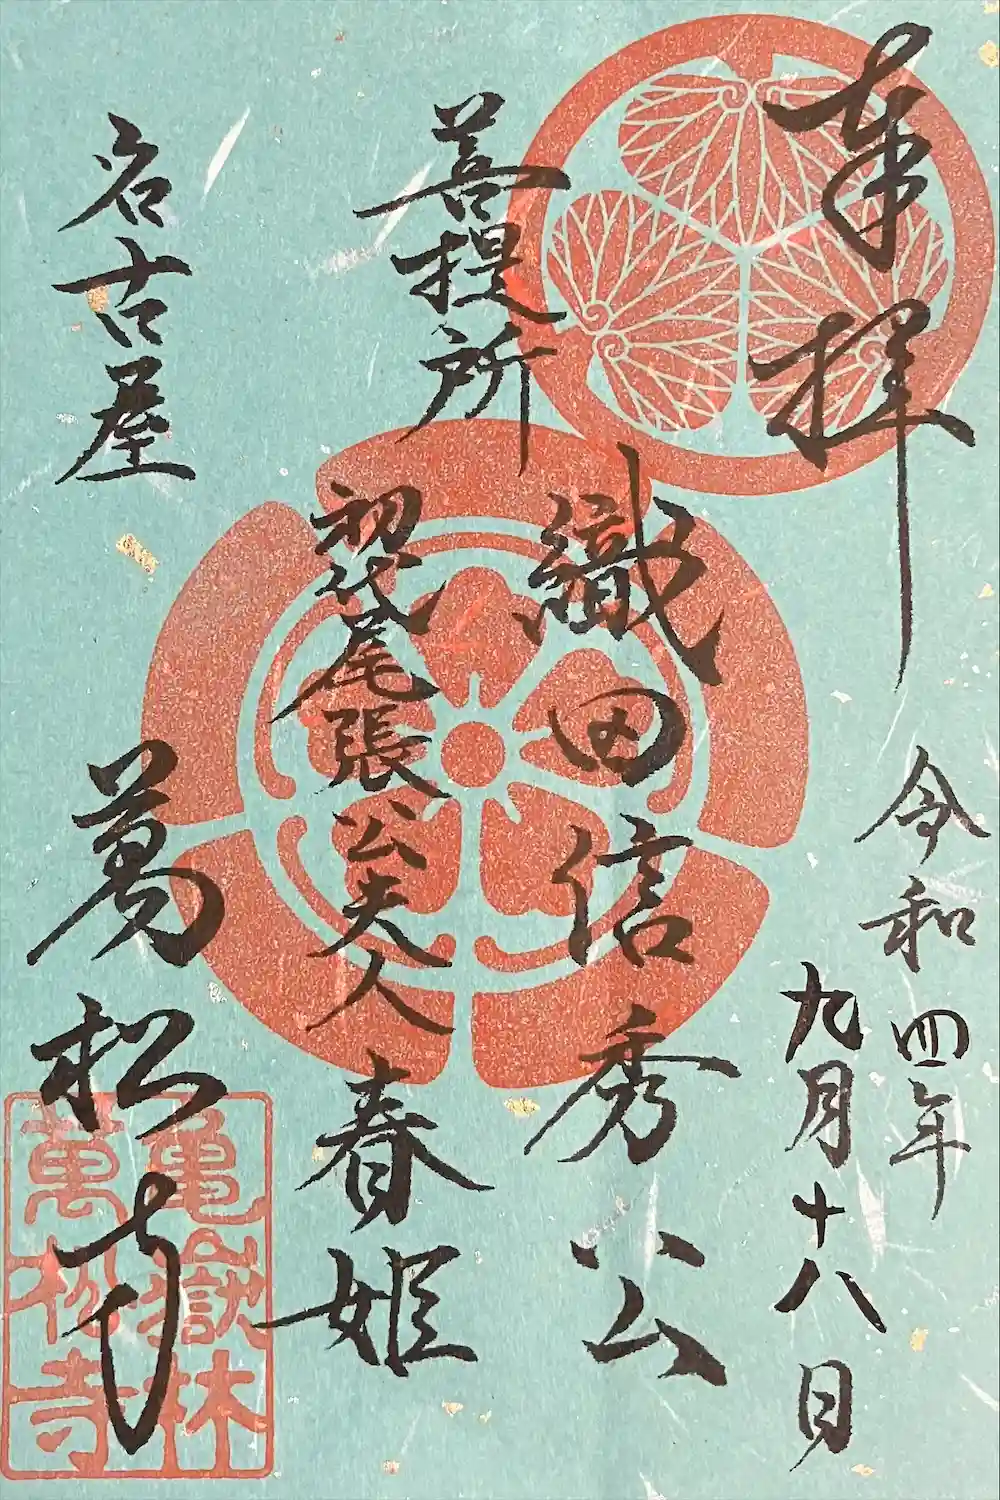 奉拝
令和四年
九月十八日
菩提所
織田信秀公
初代尾張公夫人
春姫
名古屋
萬松寺
亀嶽林
萬松寺